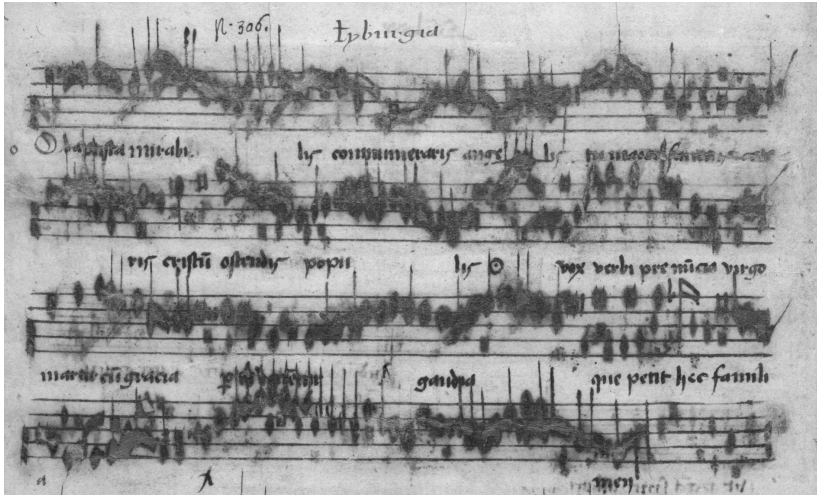 N. 306. Tyburgia
O baptista mirabi lis connumeraris ange lis tu
ris cristū ostendis popu lis vox verbi pre nūcia virgo
martir cū gracia gaudia que petit hec famili
a men